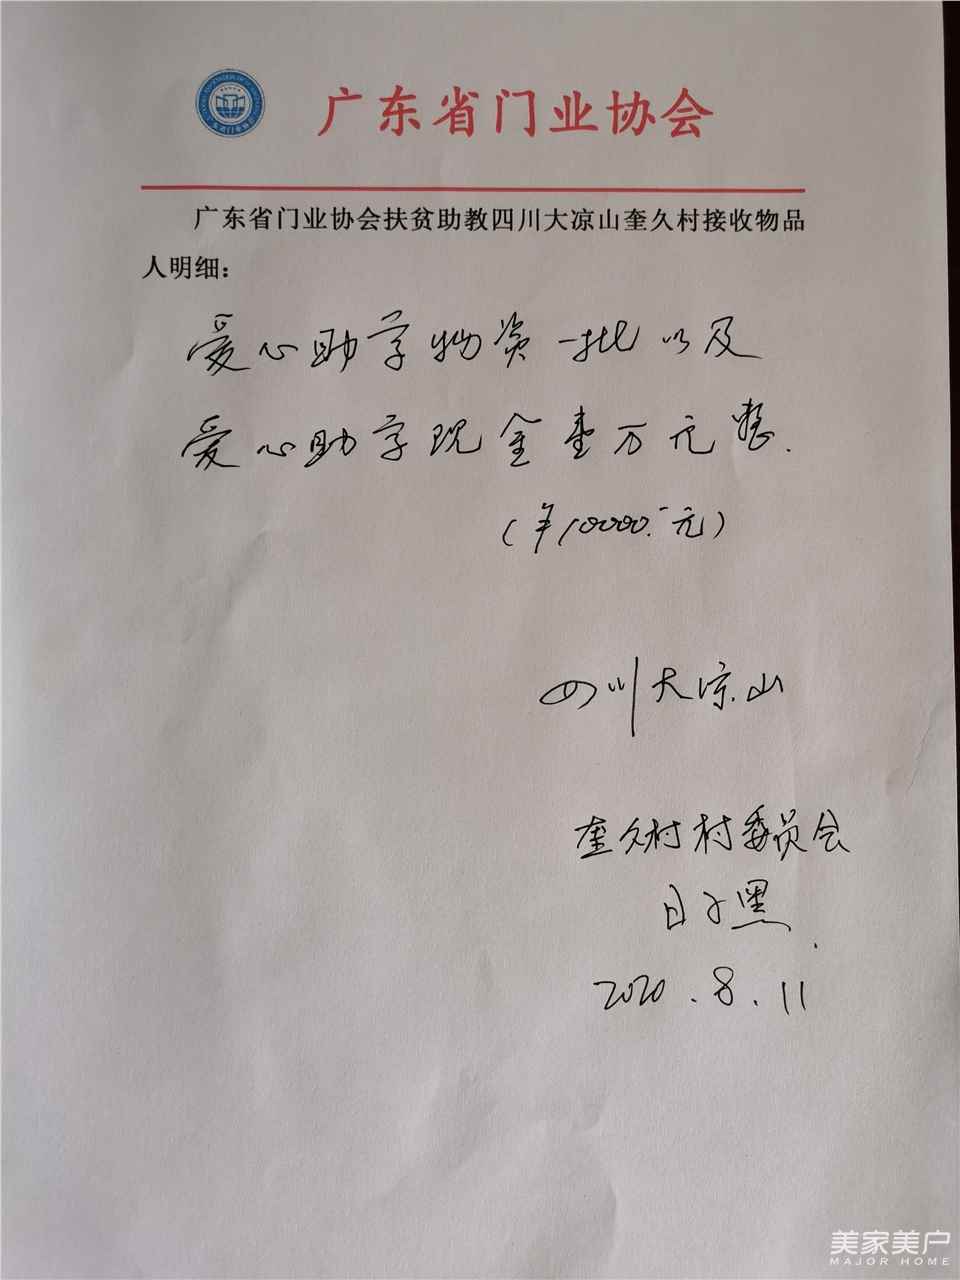 广东省门业协会
广东省门业协会扶贫助教四川大凉山奎久村接收物品
人明细：
爱心助学物资一批以及
爱心助学现金壹万元整.
(¥10000.-元)
四川大凉山
奎久村村委员会
日子黑
2020.8.11
美家美户
MAJOR HOME